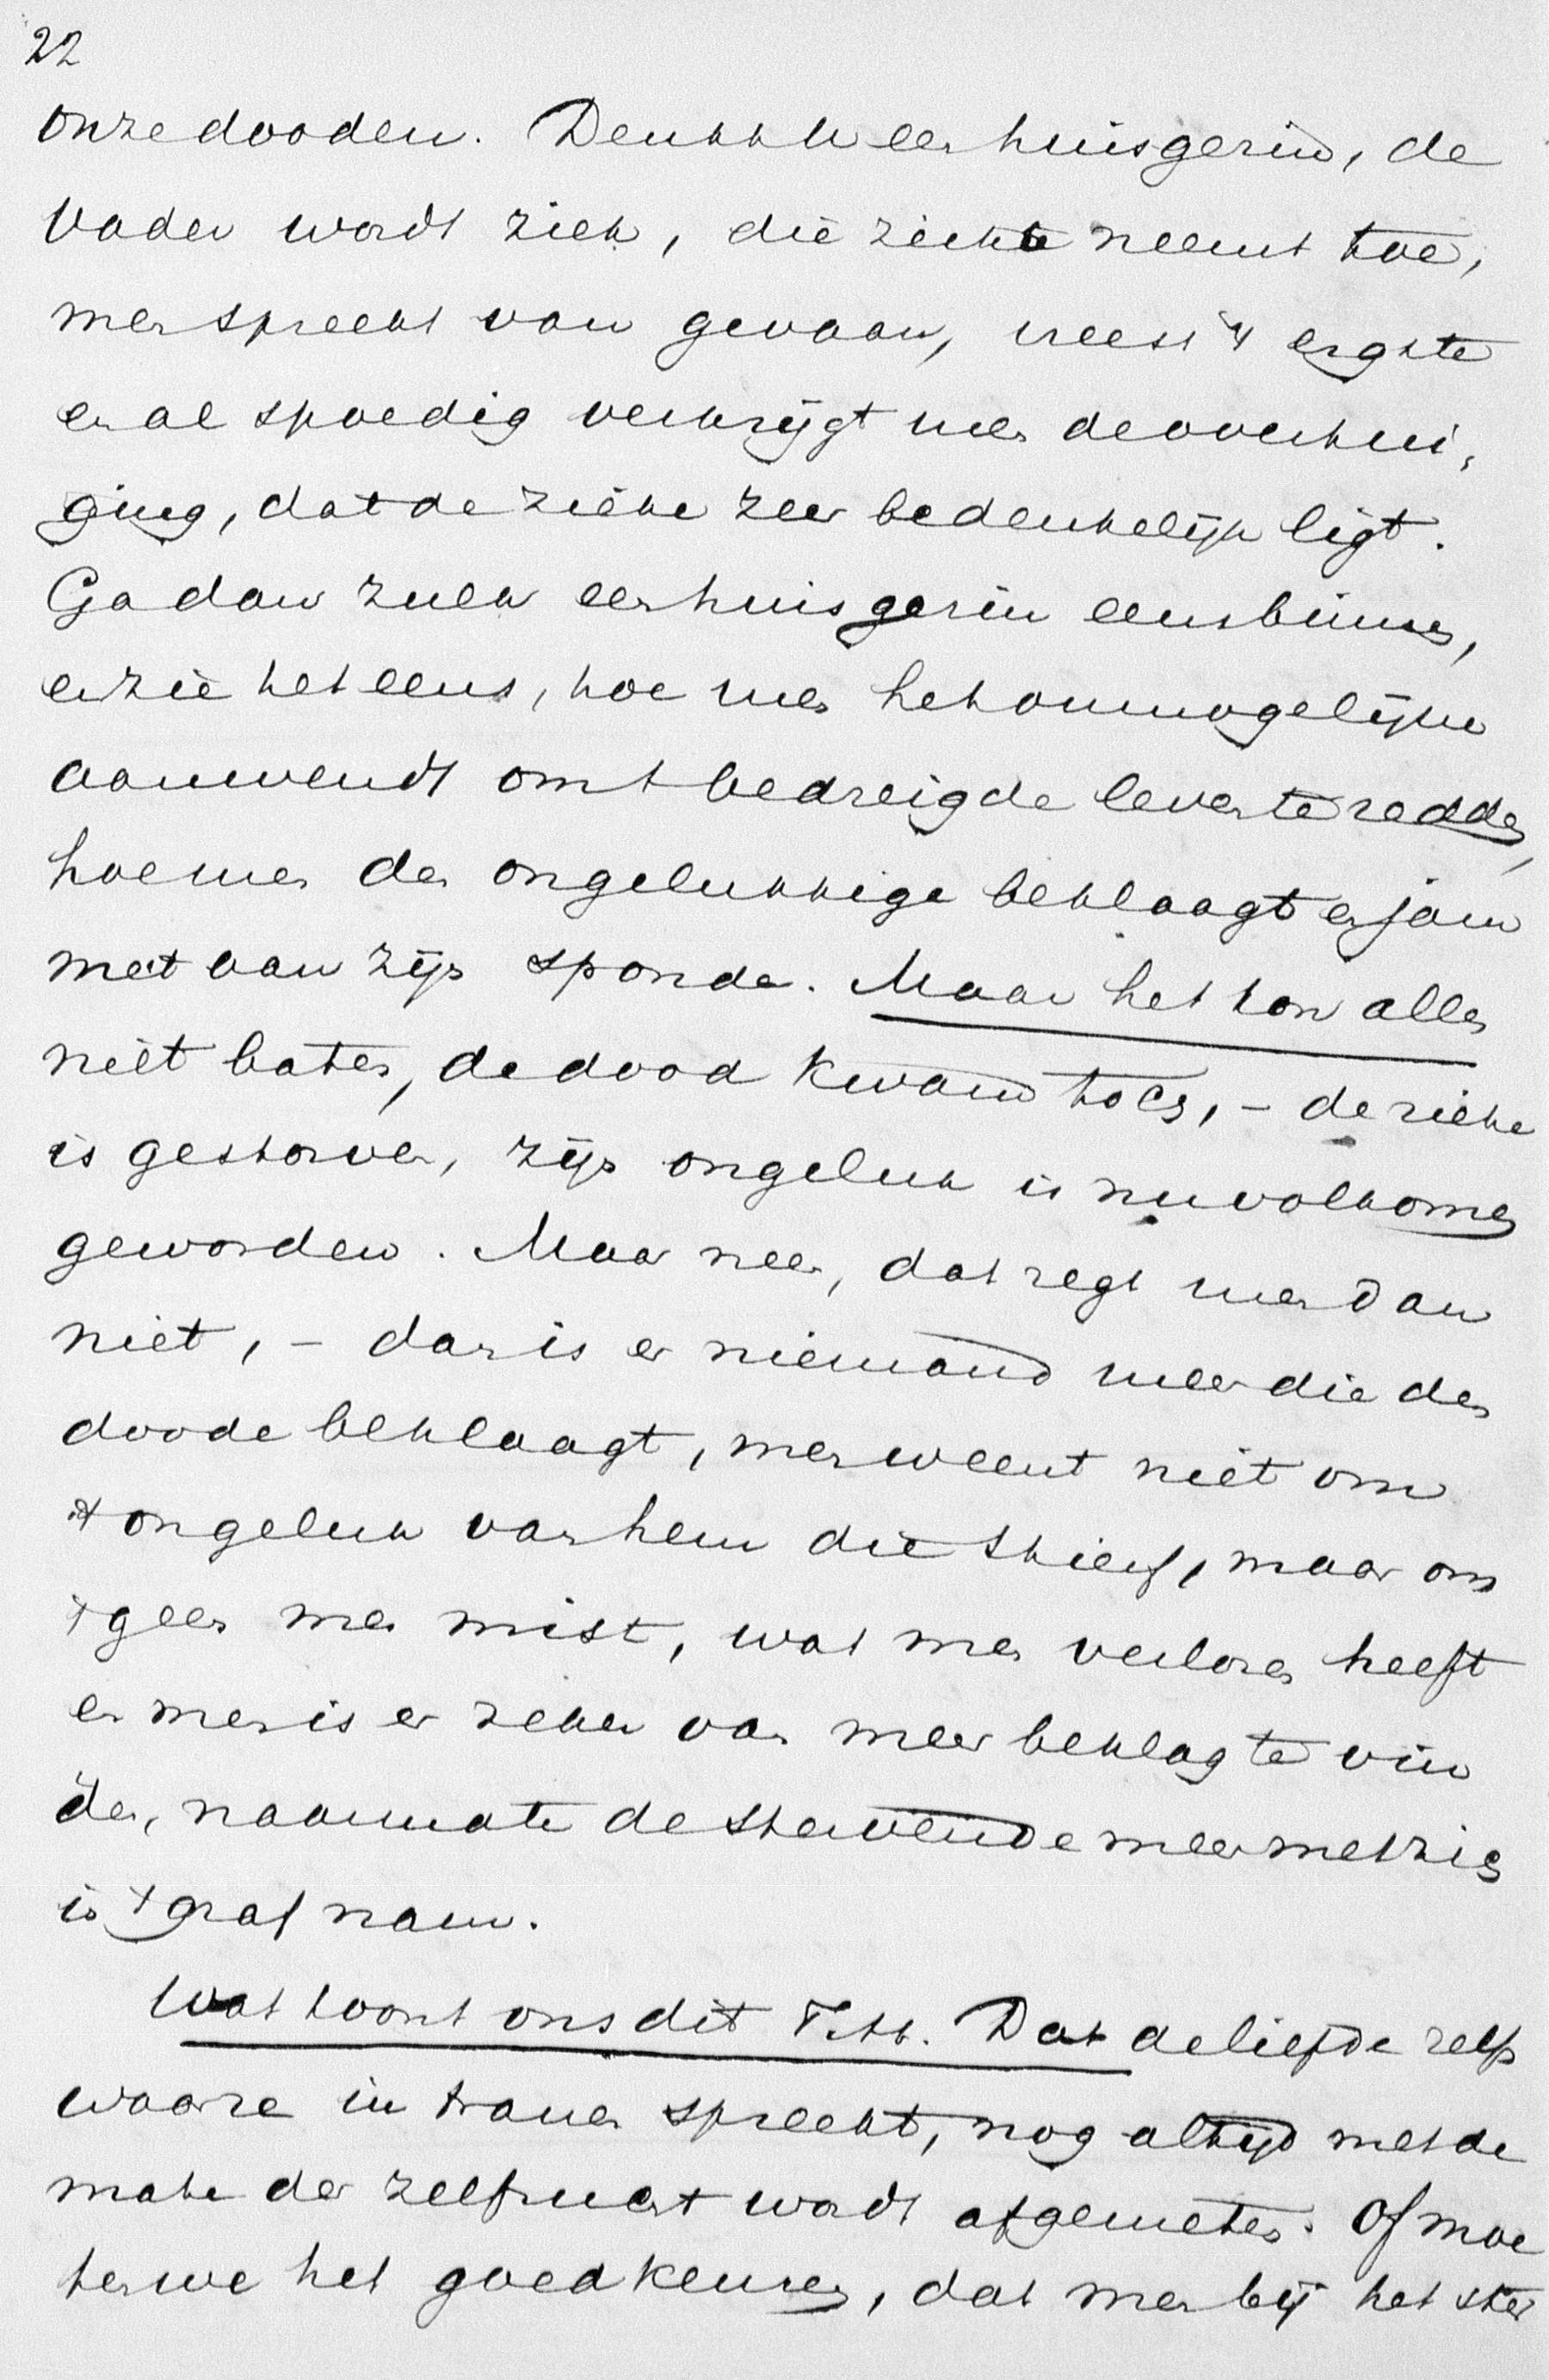 22
onze dooden. Denkt U een huisgezin, de
Vader wordt ziek, die ziekte neemt toe,
men spreekt van gevaar, vreest 't ergste
en al spoedig verkrijgt men de overtui,
ging, dat de zieke zeer bedenkelijk ligt.
Ga dan zulk een huisgezin eens binnen,
en zie het eens, hoe men het onmogelijke
aanwendt om t bedreigde leven te redden,
hoe men den ongelukkige beklaagt en jam
mert aan zijn sponde. Maar het kon alles
niet baten, de dood kwam toch, - de zieke
is gestorven, zijn ongeluk is nu volkomen
geworden. Maar neen, dat zegt men dan
niet, - dan is er niemand meer die den
doode beklaagt, men weent niet om
't ongeluk van hem die stierf, maar om
tgeen men mist, wat men verloren heeft
en men is er zeker van meer beklag te vin
den, naarmate de stervende meer met zich
in t graf nam.
Wat toont ons dit Dat de liefde zelfs
waar ze in tranen spreekt, nog altijd met de
mate der zelfzucht wordt afgemeten. Of moe
ten we het goedkeuren, dat men bij het ster